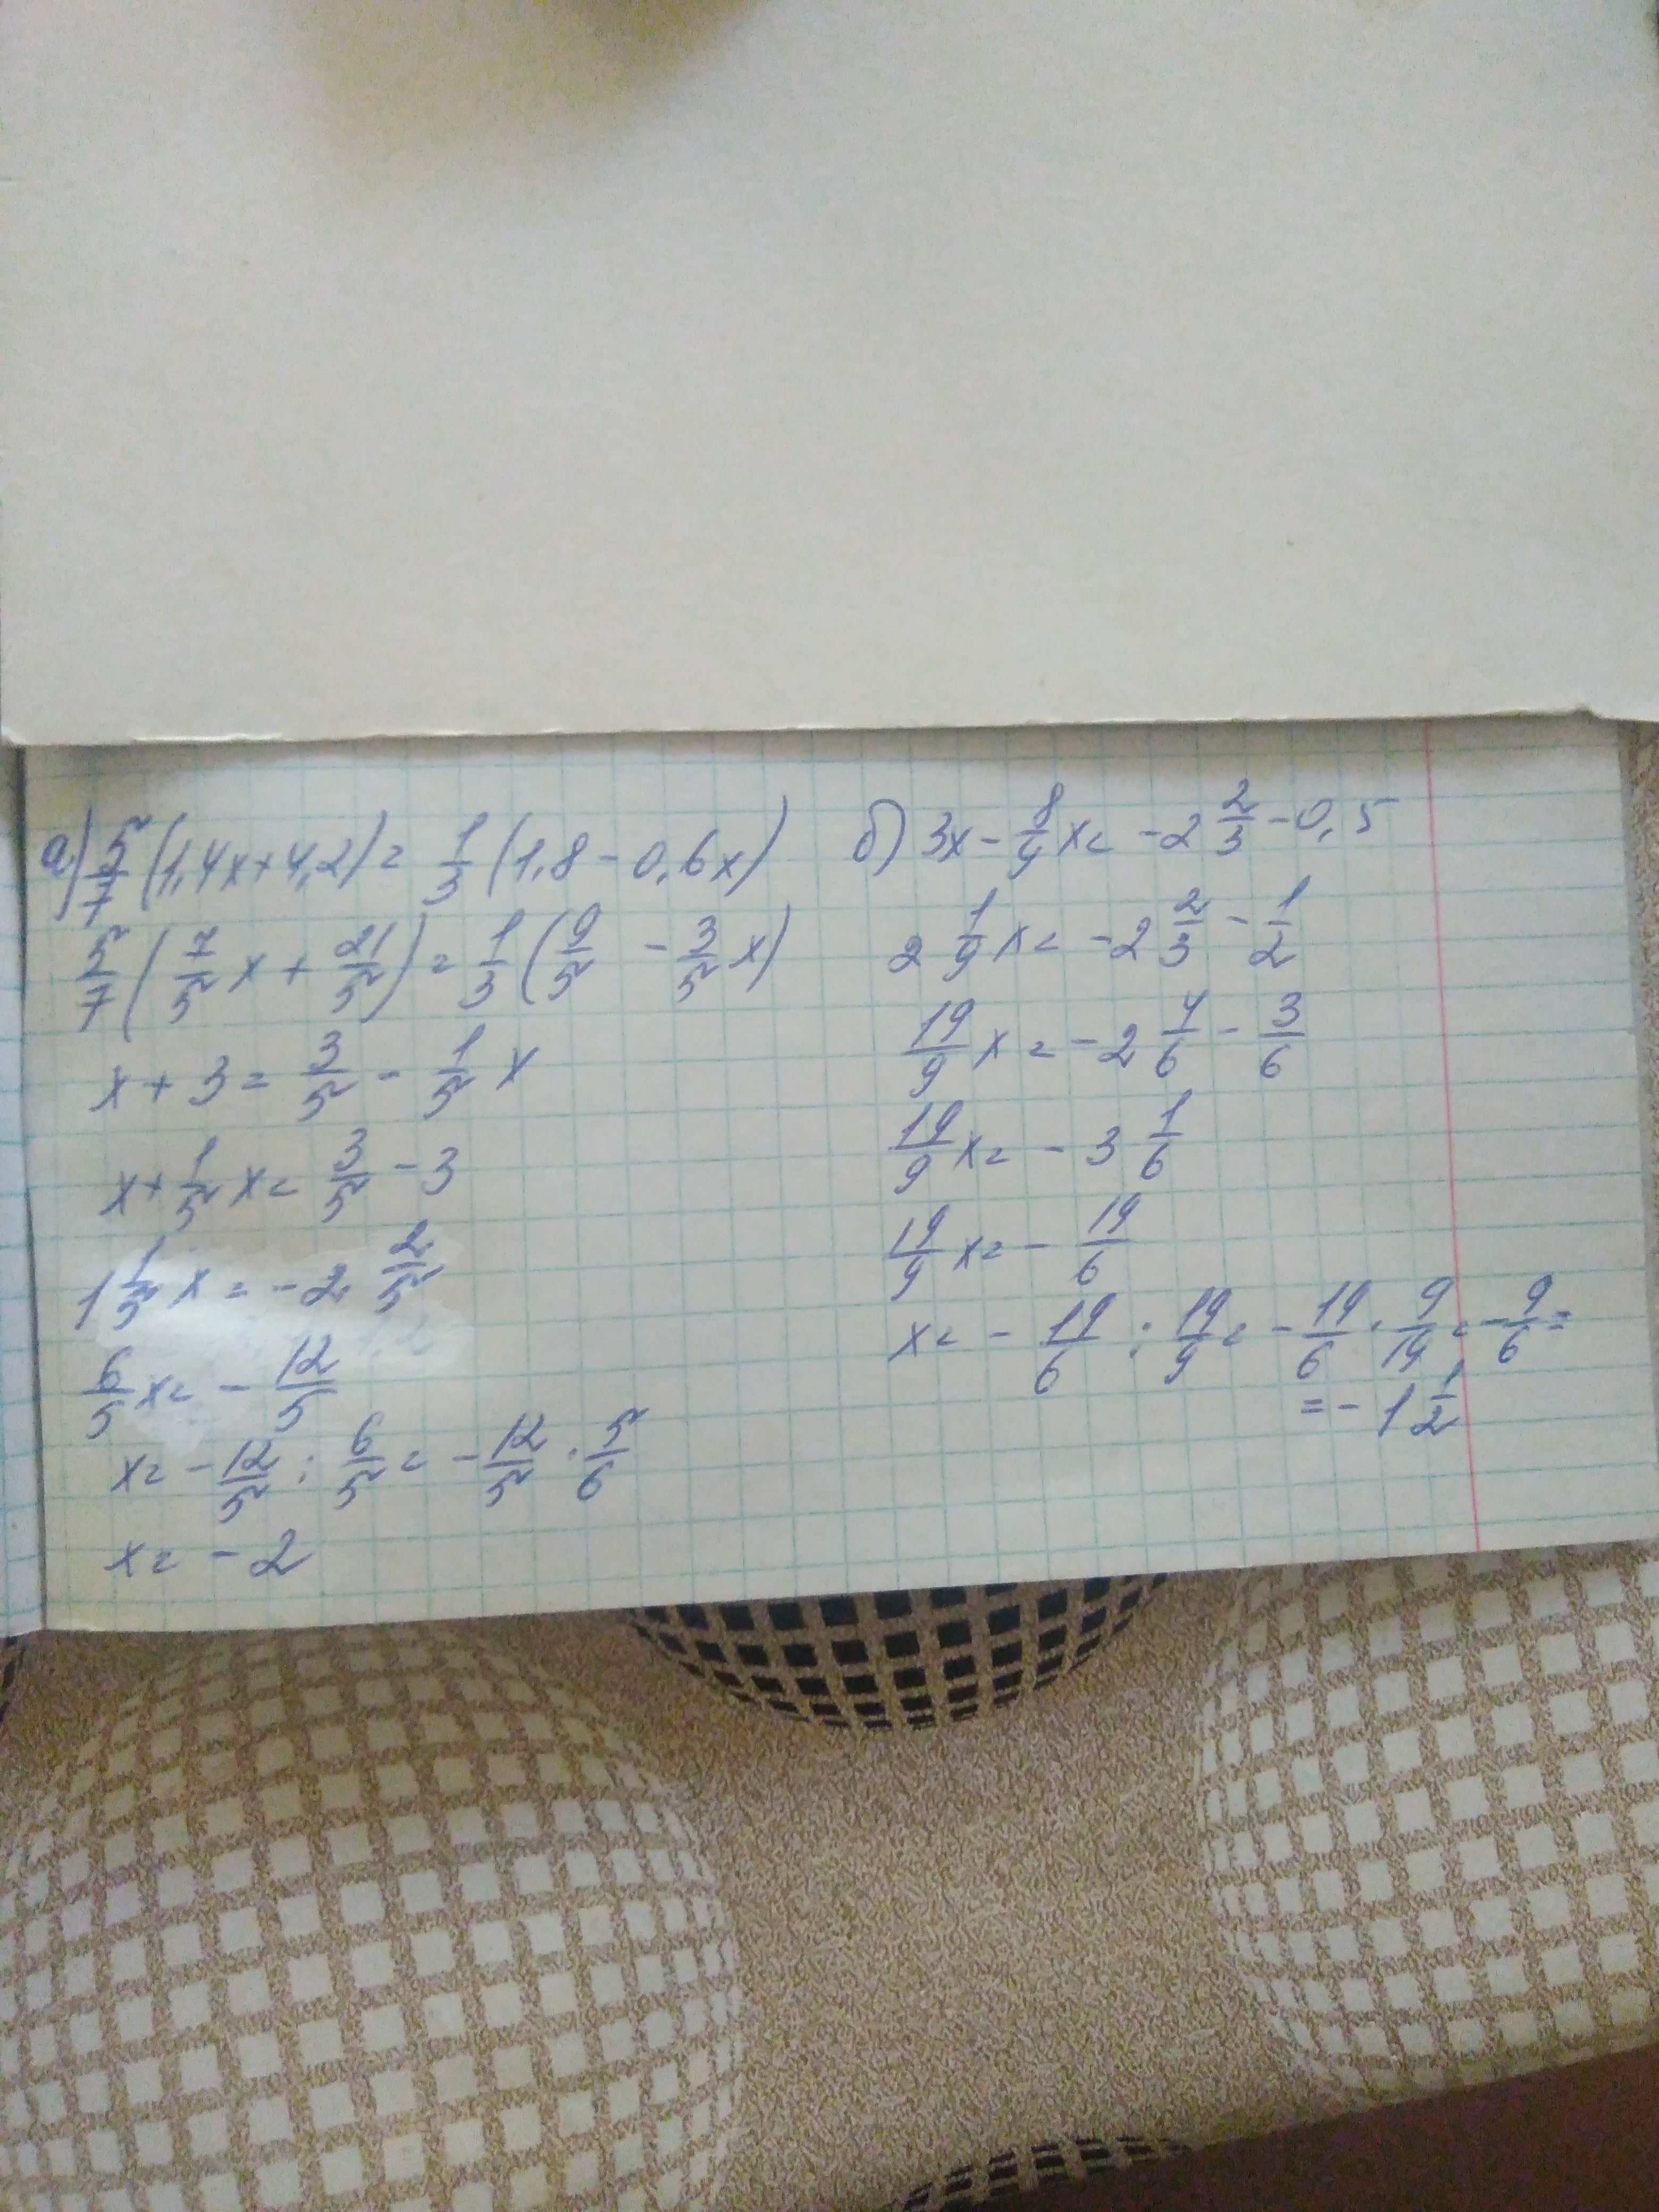 а) 5/7 (1,4x+4,2) = 1/3 (1,8 - 0,6x)
5/7 (7/5 x + 21/5) = 1/3 (9/5 - 3/5 x)
x + 3 = 3/5 - 1/5 x
x + 1/5 x = 3/5 - 3
1 1/5 x = -2 2/5
6/5 x = - 12/5
x = - 12/5 : 6/5 = - 12/5 · 5/6
x = - 2
б) 3x - 8/9 x = -2 2/3 - 0,5
2 1/9 x = -2 2/3 - 1/2
19/9 x = -2 4/6 - 3/6
19/9 x = - 3 1/6
19/9 x = - 19/6
x = - 19/6 : 19/9 = - 19/6 · 9/19 = - 9/6 =
= - 1 1/2